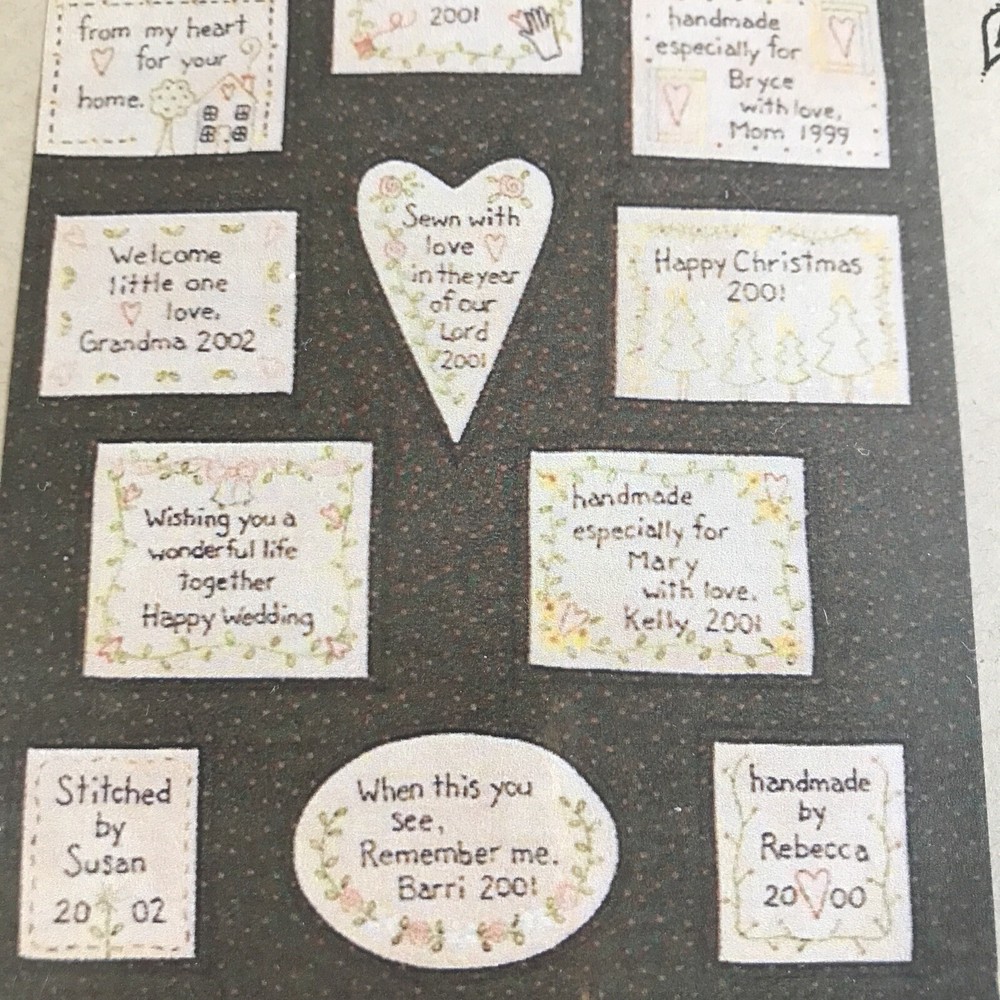 from my heart
for your
home.
2001
handmade
especially for
Bryce
with love,
Mom 1999
Welcome
little one
love,
Grandma 2002
Sewn with
love
in the year
of our
Lord
2001
Happy Christmas
2001
Wishing you a
wonderful life
together
Happy Wedding
handmade
especially for
Mary
with love,
Kelly, 2001
Stitched
by
Susan
20 02
When this you
see,
Remember me.
Barri 2001
handmade
by
Rebecca
20 00